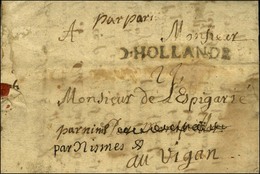 par pari
A Monsieur
D'HOLLANDE
24
Monsieur de L'Espigarié
par nimes
par Nismes
au Vigan